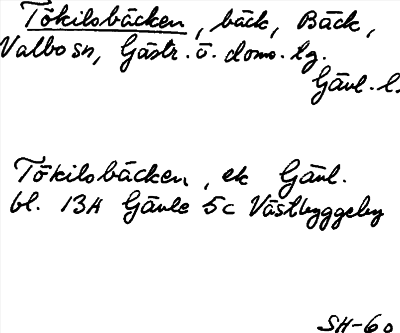 Tökilsbäcken, bäck, Bäck,
Valbo sn, Gästr. ö. doms. lg.
Gävl. l.
Tökilsbäcken, ek Gävl.
bl. 13H Gävle 5c Västbyggeby
SH-60